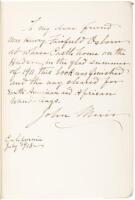 To my dear friend
Mrs Henry Fairfield Osborn
at whose Castle home on the
Hudson, in the glad summer
of 1911 this book was finished
and the way cleared for
South American and African
wanderings.
John Muir
California
July 1913